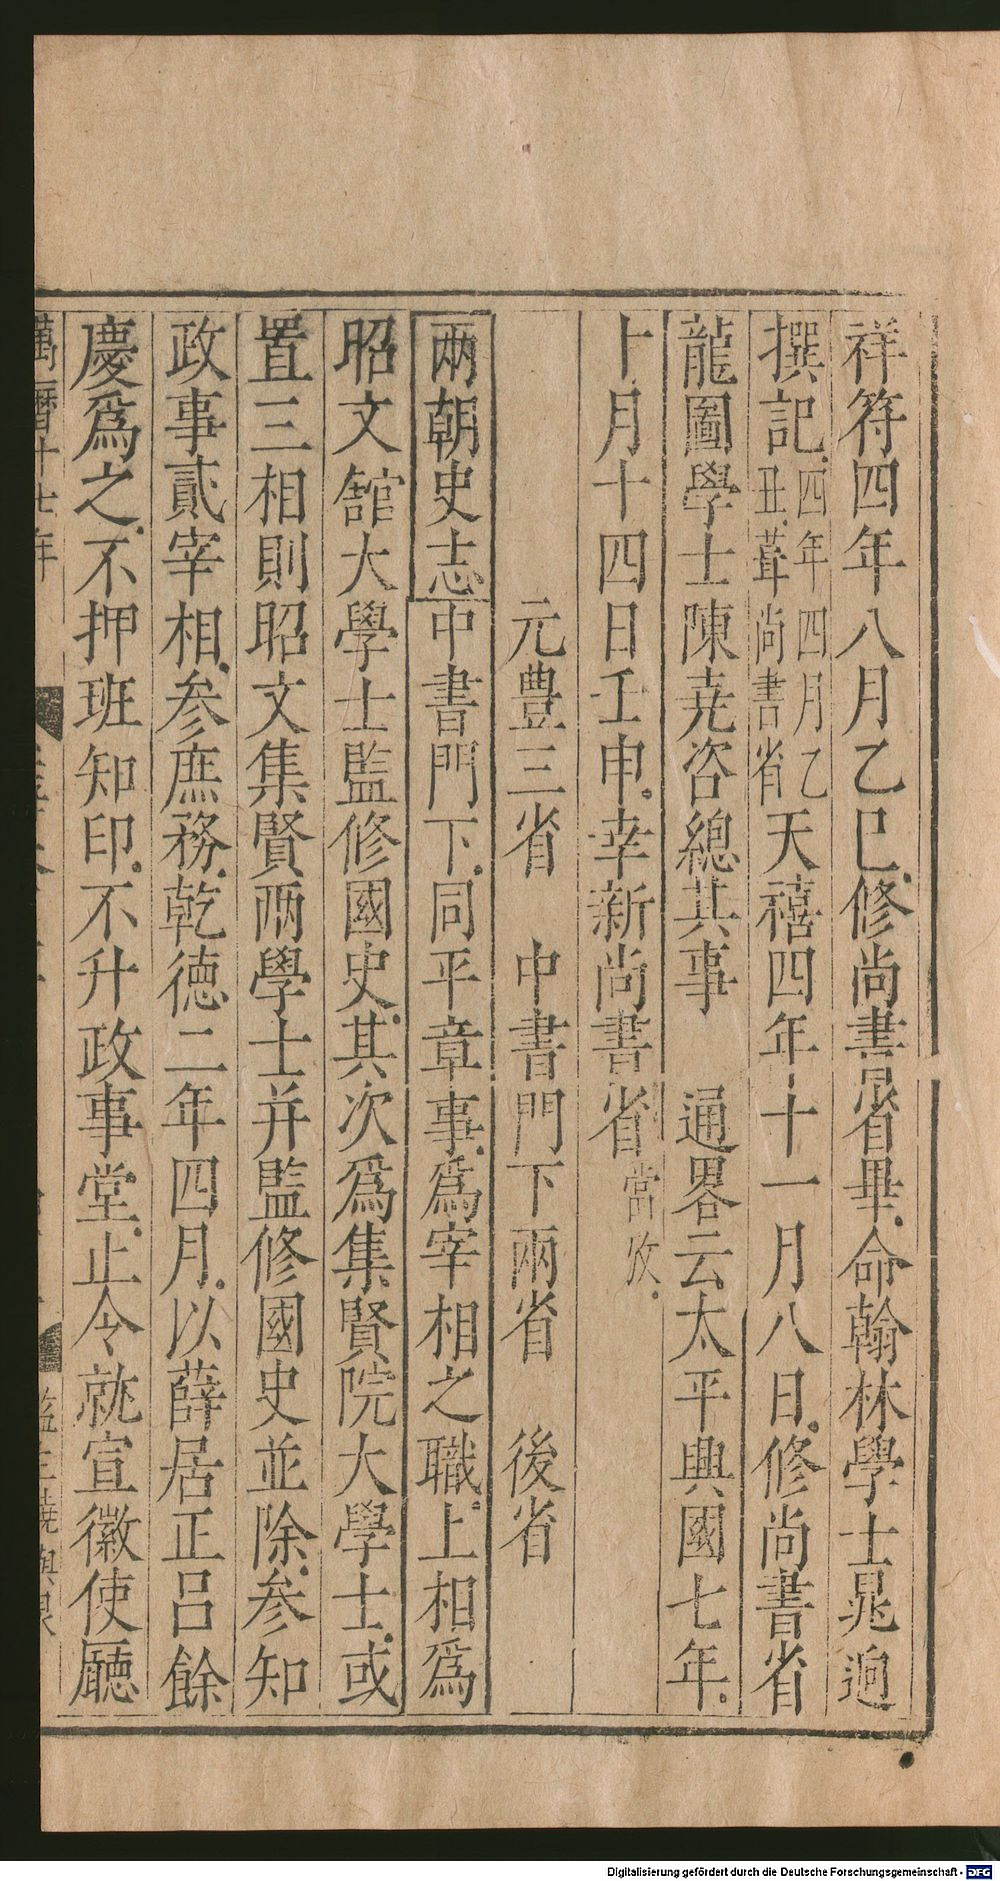 祥符四年八月乙巳修尚書省畢命翰林學士晁迥
撰記四年四月乙丑葺尚書省天禧四年十一月八日修尚書省
龍圖學士陳堯咨總其事　通畧云太平興國七年
十月十四日壬申幸新尚書省當攷
元豊三省　中書門下兩省　後省
兩朝史志中書門下同平章事爲宰相之職上相爲
昭文館大學士監修國史其次爲集賢院大學士或
置三相則昭文集賢兩學士并監修國史並除参知
政事貳宰相参庶務乾德二年四月以薛居正吕餘
慶爲之不押班知印不升政事堂止令就宣徽使廳
萬曆十七年
監生饒與
Digitalisierung gefördert durch die Deutsche Forschungsgemeinschaft - DFG